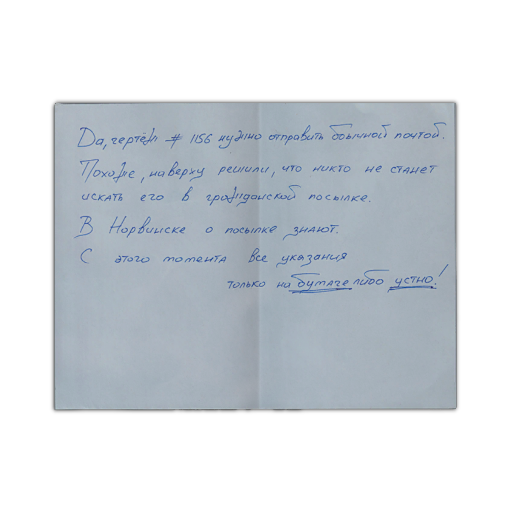 Да, чертёж # 1156 нужно отправить обычной почтой.
Похоже, наверху решили, что никто не станет
искать его в гражданской посылке.
В Норвинске о посылке знают.
С этого момента все указания
только на бумаге либо устно!